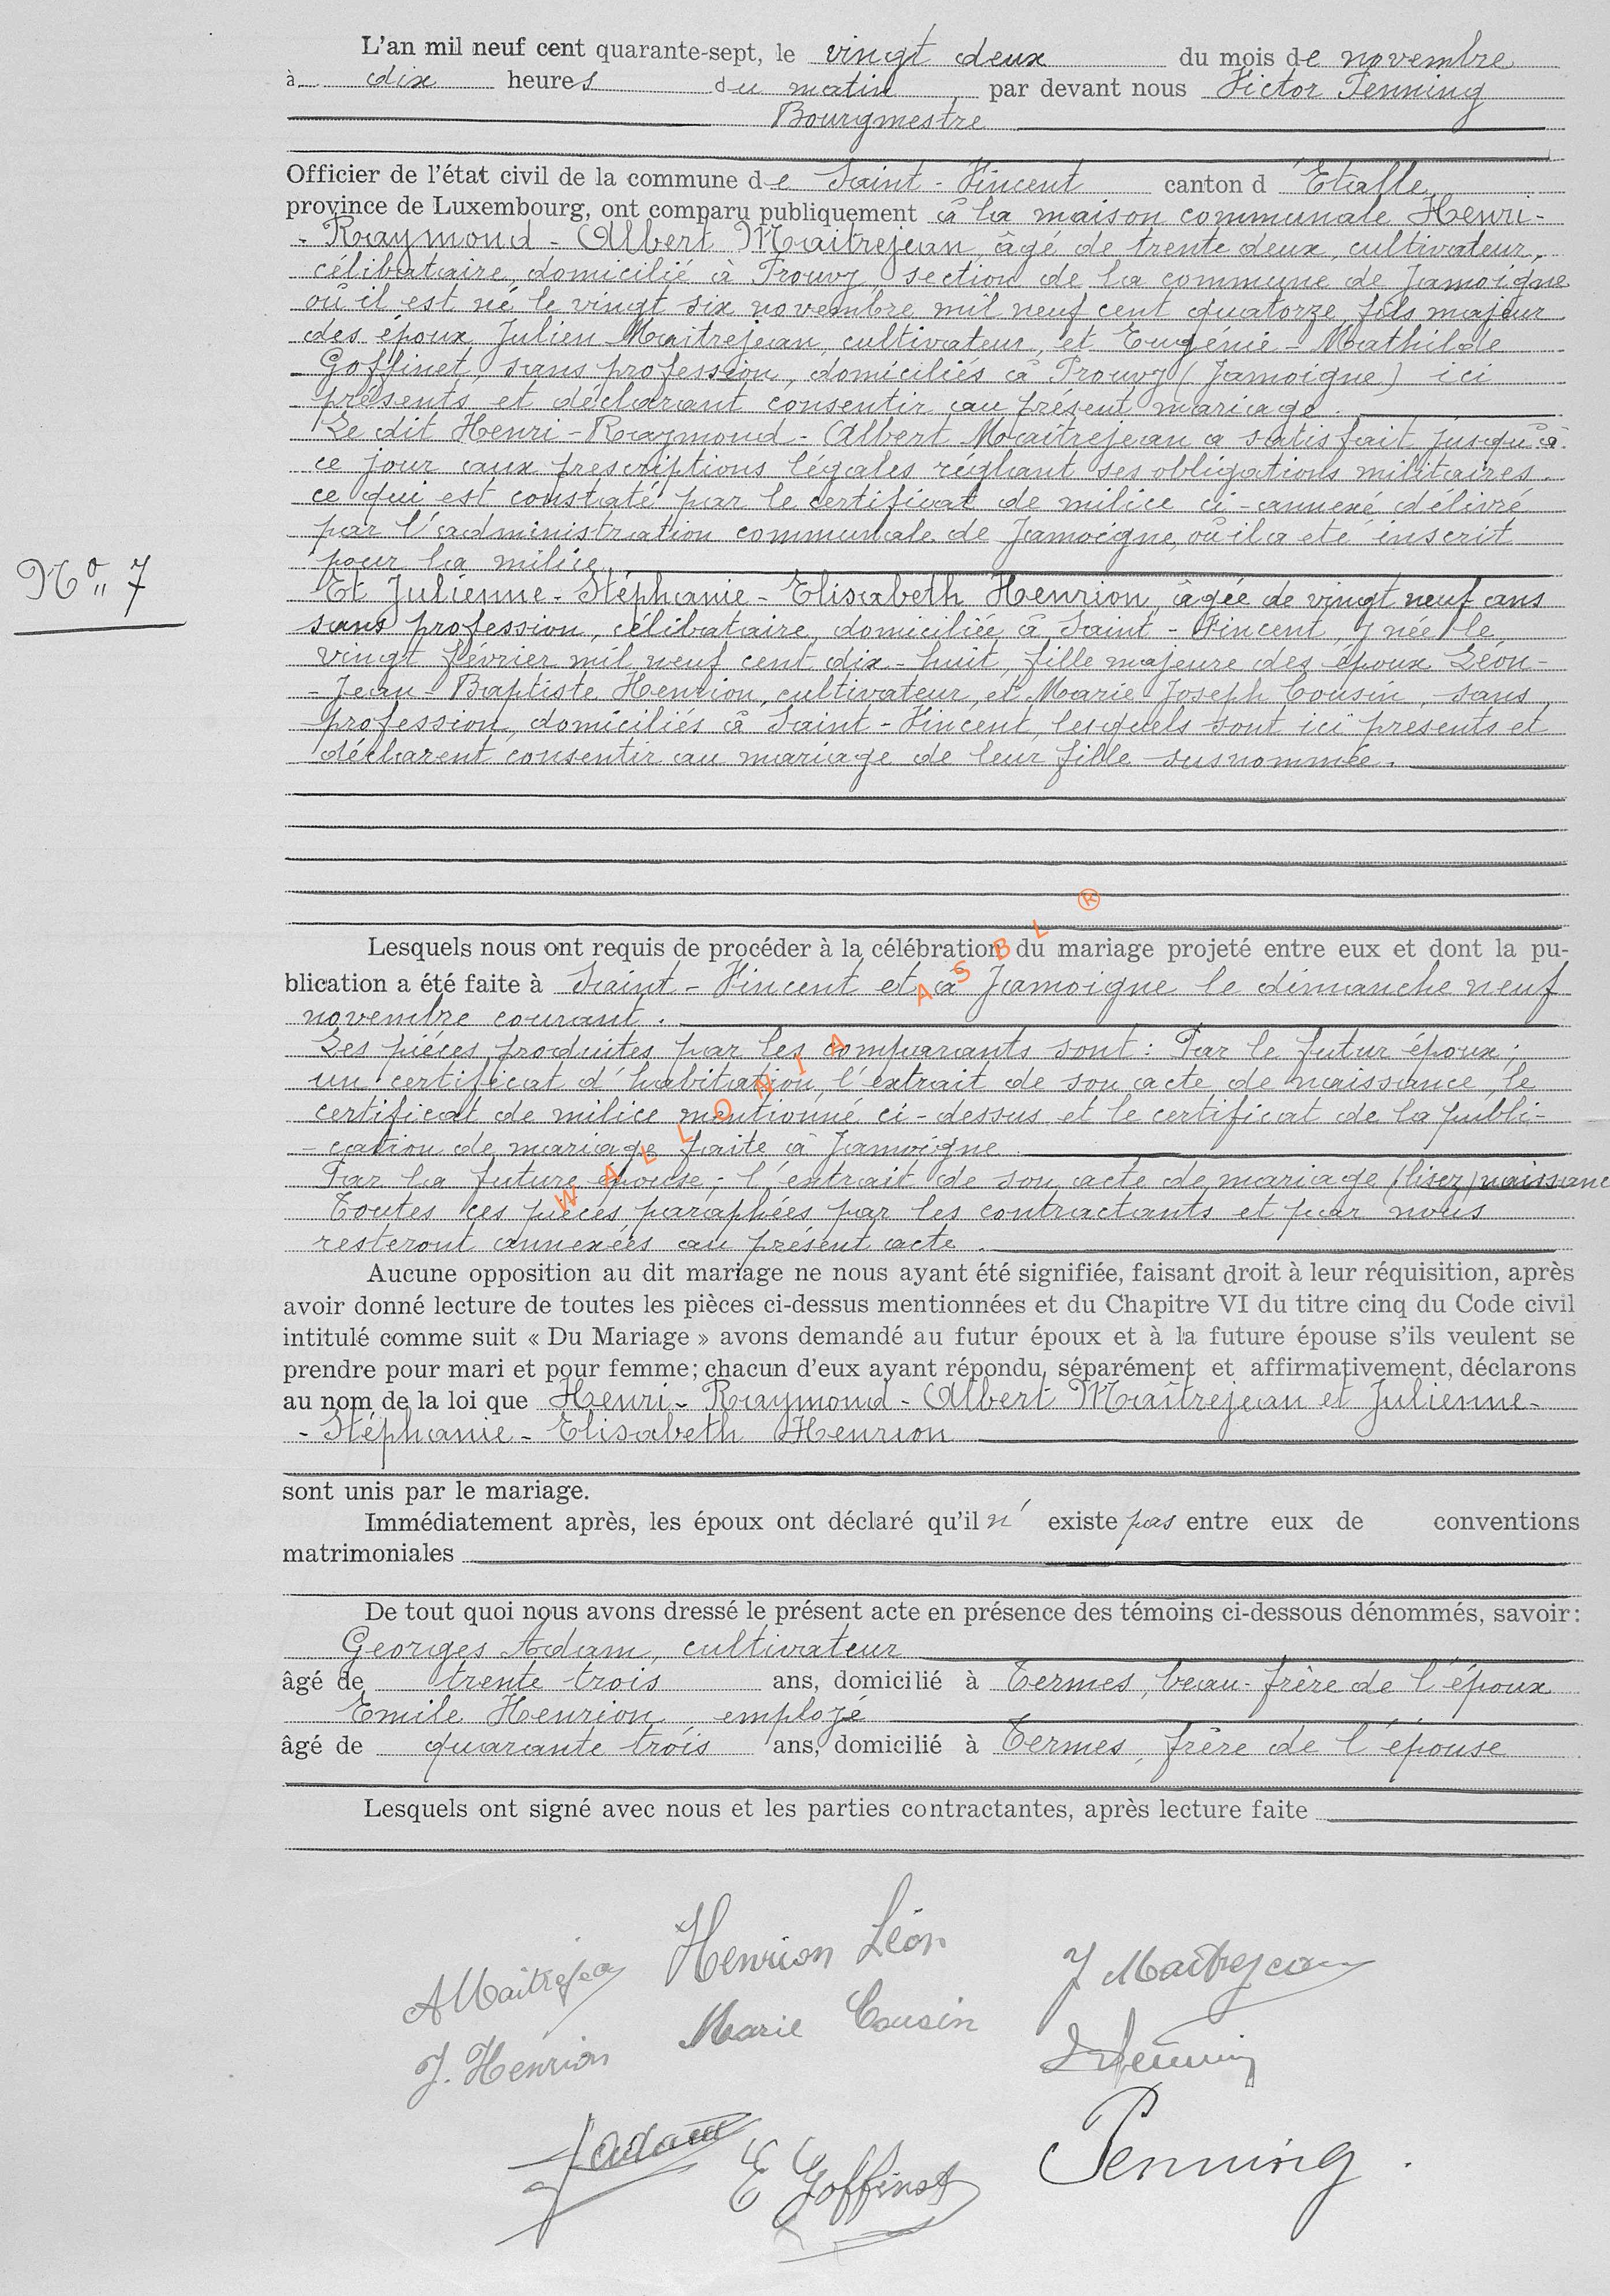 L'an mil neuf cent quarante-sept, le vingt deux du mois de novembre
à dix heures du matin par devant nous Victor Penning
Bourgmestre
Officier de l'état civil de la commune de Saint-Vincent canton d'Etalle
province de Luxembourg, ont comparu publiquement à la maison communale Henri-
- Raymond - Albert Maitrejean, âgé de trente deux, cultivateur,
célibataire, domicilié à Prouvy, section de la commune de Jamoigne
où il est né le vingt six novembre mil neuf cent quatorze, fils majeur
des époux Julien Maitrejean, cultivateur, et Eugénie - Mathilde
Goffinet, sans profession, domiciliés à Prouvy (Jamoigne) ici
présents et déclarant consentir au présent mariage.
Le dit Henri - Raymond - Albert Maîtrejean a satisfait jusqu'à
ce jour aux prescriptions légales réglant ses obligations militaires.
ce qui est constaté par le certificat de milice ci-annexé délivré
par l'administration communale de Jamoigne, où il a été inscrit
pour la milice.
N° 7
Et Julienne - Stéphanie - Elisabeth Henrion, âgée de vingt neuf ans
sans profession, célibataire, domiciliée à Saint - Vincent, y née le
vingt février mil neuf cent dix-huit, fille majeure des époux Léon-
- Jean - Baptiste Henrion, cultivateur, et Marie Joseph Cousin, sans
profession, domiciliés à Saint - Vincent, lesquels sont ici présents et
déclarent consentir au mariage de leur fille susnommée.
Lesquels nous ont requis de procéder à la célébration du mariage projeté entre eux et dont la pu-
blication a été faite à Saint - Vincent et à Jamoigne le dimanche neuf
novembre courant.
Les pièces produites par les comparants sont : Par le futur époux ;
un certificat d'habitation, l'extrait de son acte de naissance, le
certificat de milice mentionné ci-dessus et le certificat de la publi-
- cation de mariage faite à Jamoigne.
Par la future épouse ; l'extrait de son acte de mariage (lisez) naissance
Toutes ces pièces paraphées par les contractants et par nous
resteront annexées au présent acte.
Aucune opposition au dit mariage ne nous ayant été signifiée, faisant droit à leur réquisition, après
avoir donné lecture de toutes les pièces ci-dessus mentionnées et du Chapitre VI du titre cinq du Code civil
intitulé comme suit « Du Mariage » avons demandé au futur époux et à la future épouse s'ils veulent se
prendre pour mari et pour femme; chacun d'eux ayant répondu, séparément et affirmativement, déclarons
au nom de la loi que Henri - Raymond - Albert Maîtrejean et Julienne-
- Stéphanie - Elisabeth Henrion
sont unis par le mariage.
Immédiatement après, les époux ont déclaré qu'il n'existe pas entre eux de conventions
matrimoniales
De tout quoi nous avons dressé le présent acte en présence des témoins ci-dessous dénommés, savoir:
Georges Adam, cultivateur
âgé de trente trois ans, domicilié à Termes, beau-frère de l'époux
Emile Henrion, employé
âgé de quarante trois ans, domicilié à Termes, frère de l'épouse
Lesquels ont signé avec nous et les parties contractantes, après lecture faite
A Maitrejean Henrion Léon J Maitrejean
J. Henrion Marie Cousin
Adam E Goffinet Penning.
WALLONIA ASBL ®